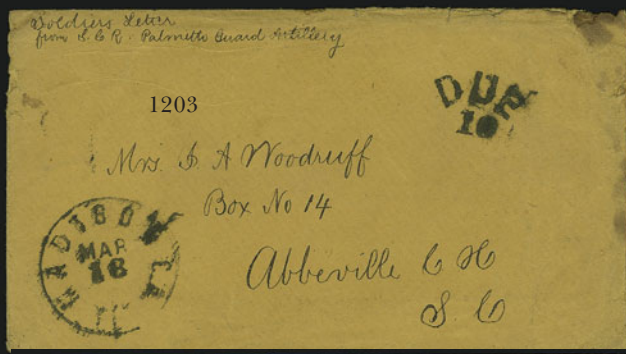 Soldiers Letter
from S. C. R. Palmetto Guard Artillery
1203
DUE
10
Mrs. A Woodruff
Box No 14
Abbeville C H
S. C
MADISON
MAR
18